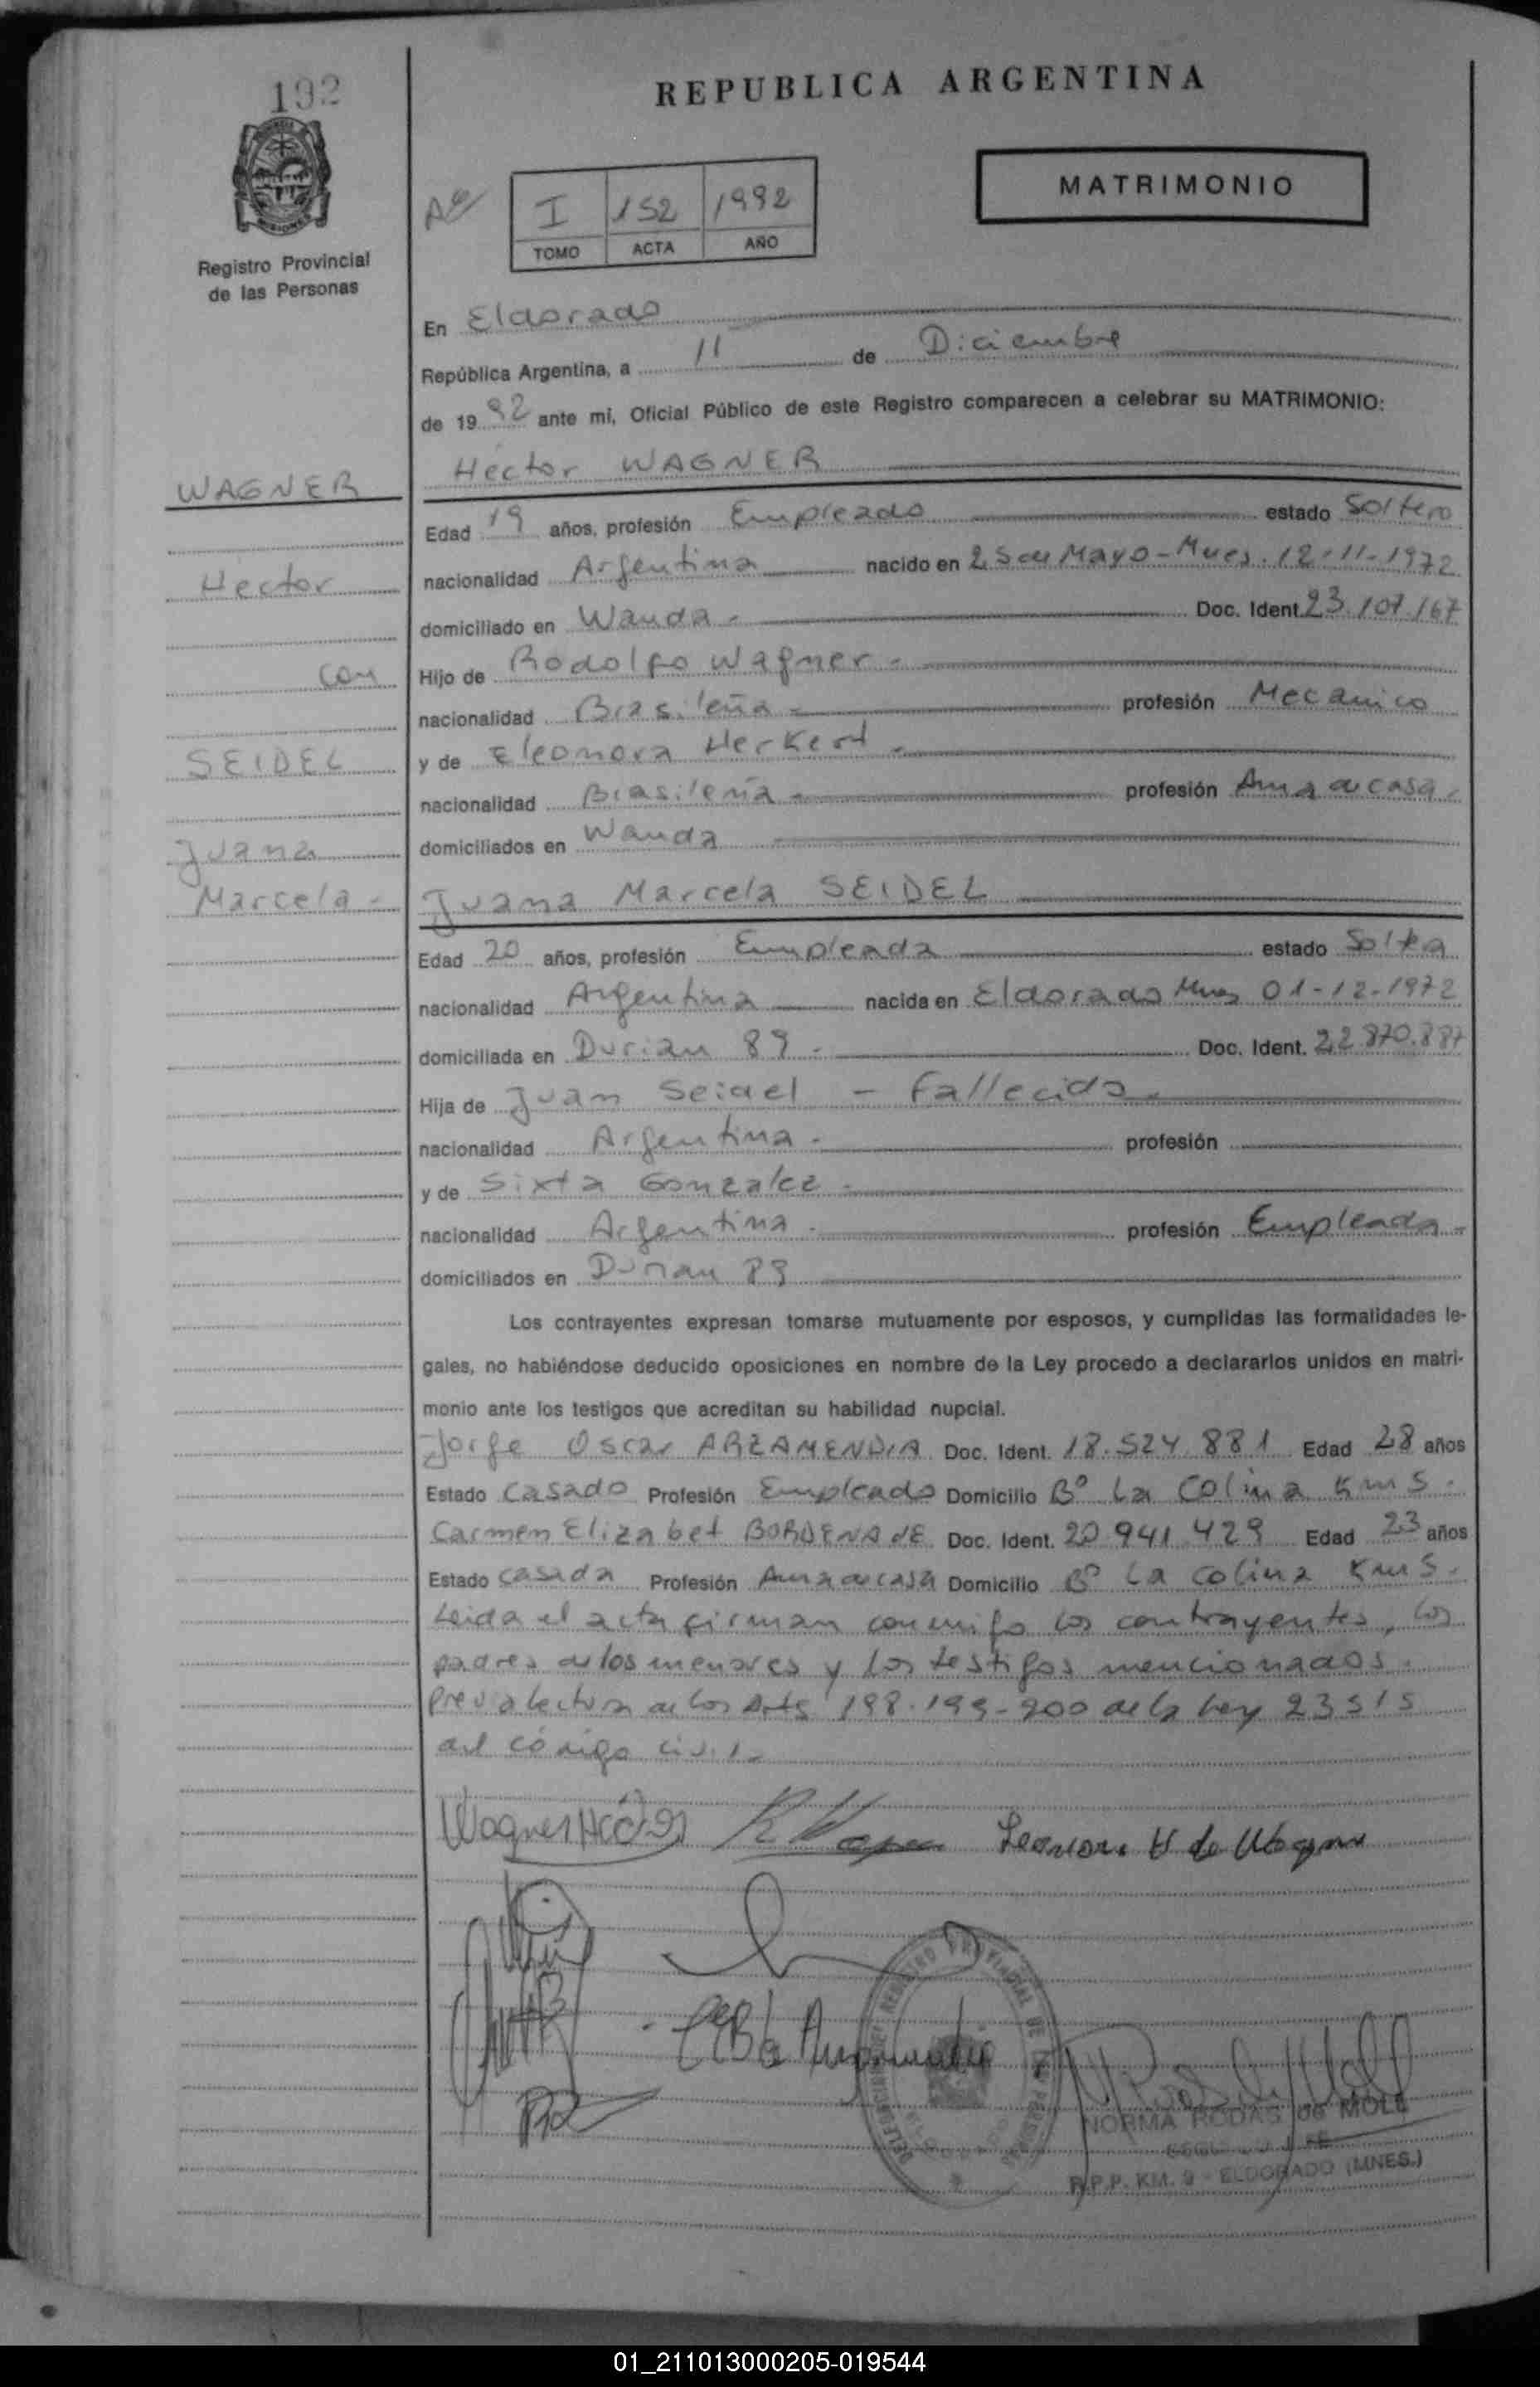 192
REPUBLICA ARGENTINA
MATRIMONIO
I 152 1992
TOMO ACTA AÑO
Registro Provincial
de las Personas
En Eldorado
República Argentina, a 11 de Diciembre
de 1992 ante mi, Oficial Público de este Registro comparecen a celebrar su MATRIMONIO:
Hector WAGNER
WAGNER
Edad 19 años, profesión Empleado estado Soltero
Hector
nacionalidad Argentina nacido en 25 de Mayo - Mnes. 12-11-1972
domiciliado en Wanda - Doc. Ident. 23.107.167
con
Hijo de Rodolfo Wagner -
nacionalidad Brasileña - profesión Mecanico
SEIDEL
y de Eleonora Herkert -
nacionalidad Brasileña - profesión Ama de casa -
Juana
domiciliados en Wanda
Marcela -
Juana Marcela SEIDEL
Edad 20 años, profesión Empleada estado Soltera
nacionalidad Argentina nacida en Eldorado Mnes 01-12-1972
domiciliada en Durian 89 - Doc. Ident. 22.870.887
Hija de Juan Seidel - Fallecido -
nacionalidad Argentina - profesión
y de Sixta Gonzalez -
nacionalidad Argentina - profesión Empleada -
domiciliados en Durian 89
Los contrayentes expresan tomarse mutuamente por esposos, y cumplidas las formalidades le-
gales, no habiéndose deducido oposiciones en nombre de la Ley procedo a declararlos unidos en matri-
monio ante los testigos que acreditan su habilidad nupcial.
Jorge Oscar ARZAMENDIA Doc. Ident. 18.524.881 Edad 28 años
Estado Casado Profesión Empleado Domicilio Bº La Colina Km 5.
Carmen Elizabet BORDENAVE Doc. Ident. 20.941.429 Edad 23 años
Estado Casada Profesión Ama de casa Domicilio Bº La Colina Km 5.
Leida el acta firman conmigo los contrayentes, los
padres de los menores y los testigos mencionados.
Previa lectura de los Arts 198-199-200 de la Ley 23515
del código civil -
Wagner Héctor
R Wagner
Leonora H de Wagner
NORMA RODAS de MOLE
R.P.P. KM. 9 - ELDORADO (MNES.)
01_211013000205-019544